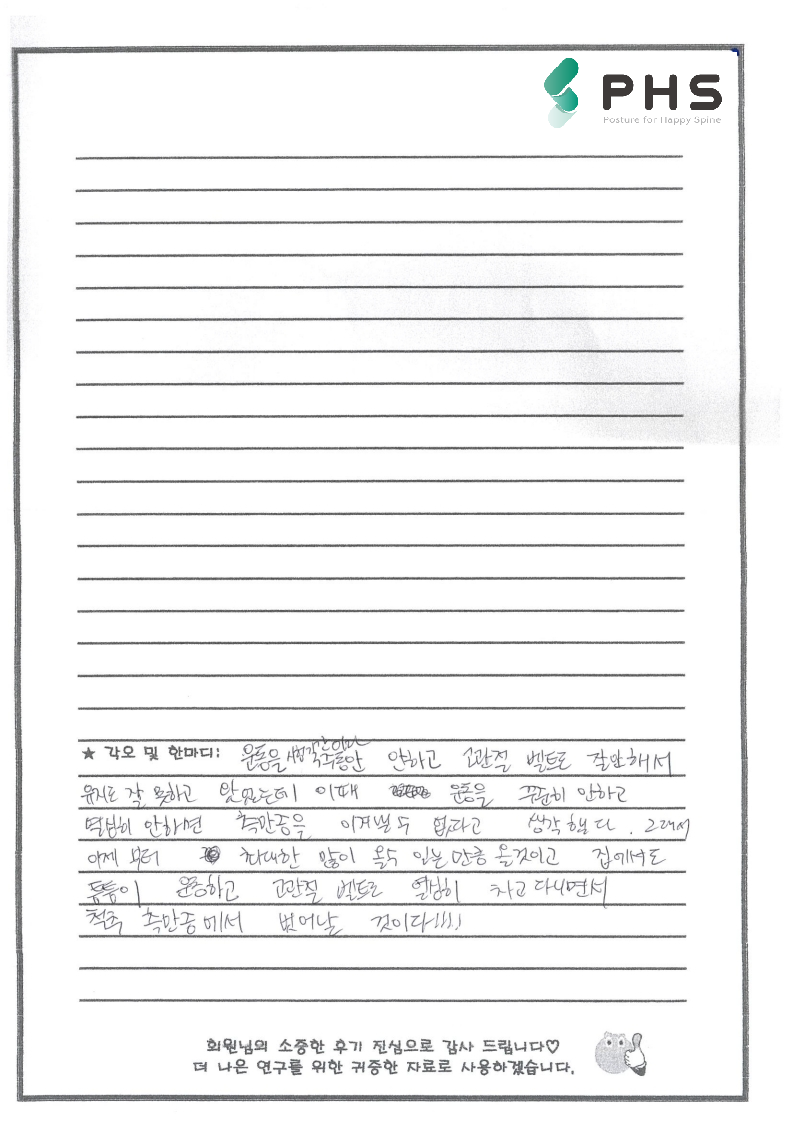 PHS
Posture for Happy Spine
★ 각오 및 한마디: 운동을 시험기간이라
각주동안 안하고 고관절 벨트도 잘안해서
유지도 잘 못하고 았었는데 이때 운동을 꾸준히 안하고
열심히 안하면 측만증을 이겨낼 수 없다고 생각했다. 그래서
이제 부터 최대한 많이 올수 있는 만큼 올것이고 집에서도
운동하고 고관절 벨트도 열심히 차고 다니면서
척추 측만증에서 벗어날 것이다!!!!
회원님의 소중한 후기 진심으로 감사 드립니다♡
더 나은 연구를 위한 귀중한 자료로 사용하겠습니다.